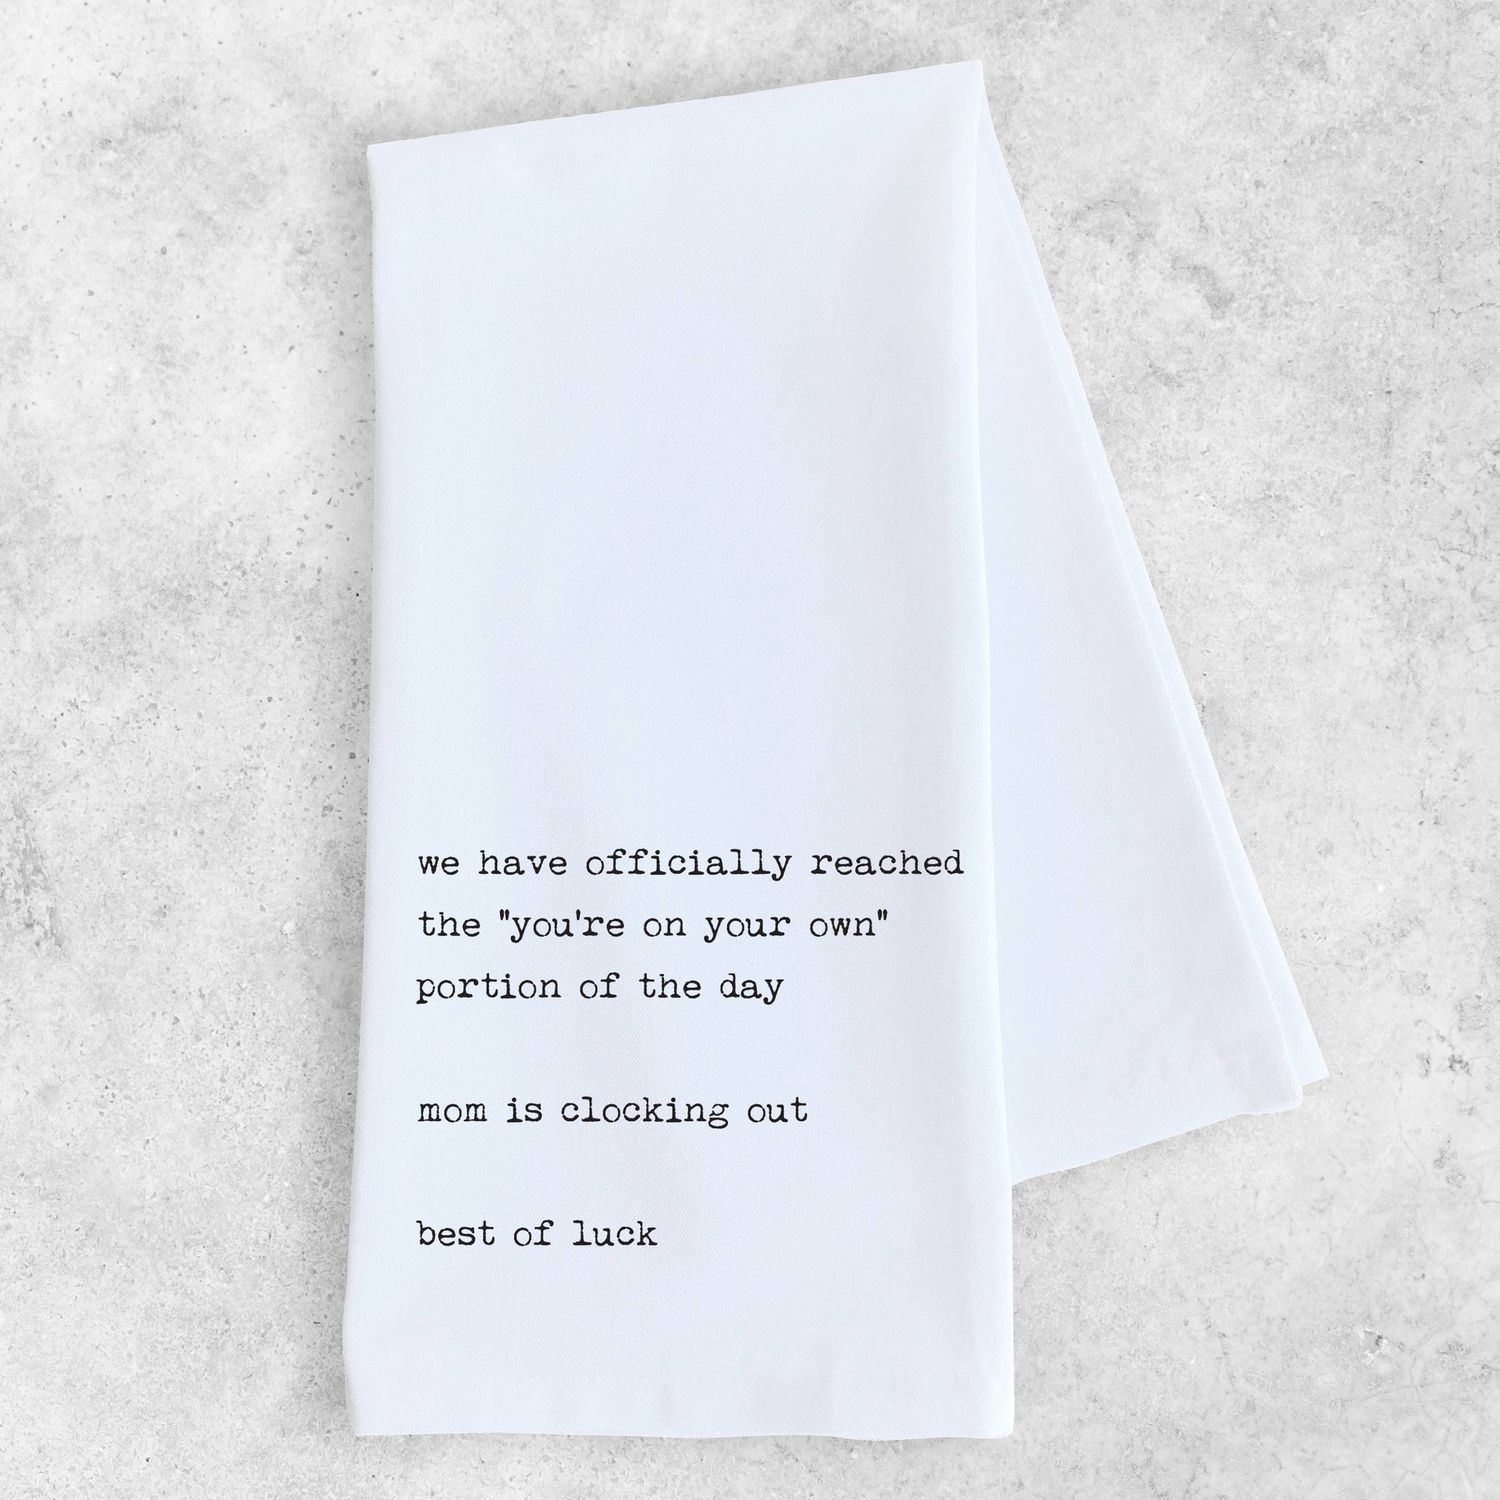 we have officially reached
the "you're on your own"
portion of the day
mom is clocking out
best of luck